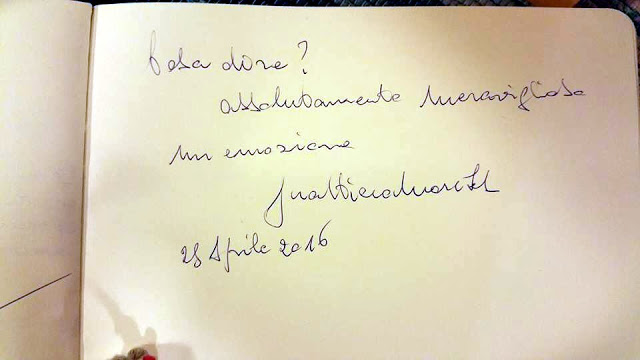 Cosa dire?
assolutamente meravigliosa
un emozione
25 Aprile 2016